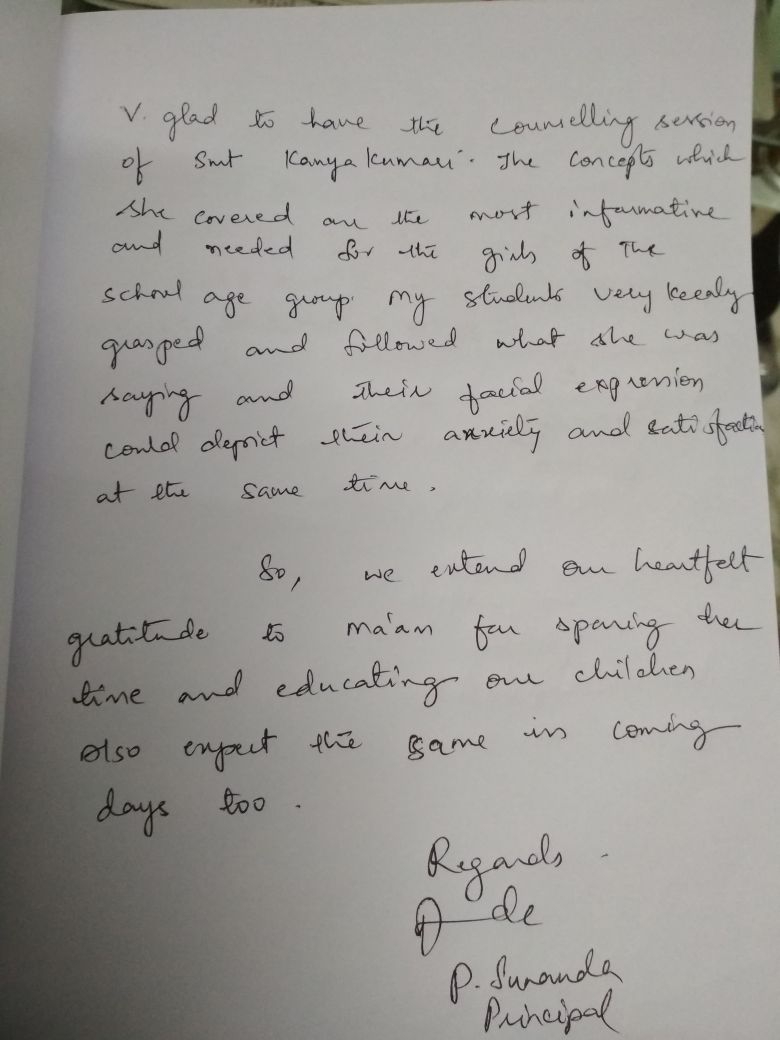 V. glad to have the counselling session
of Smt Kanyakumari. The concepts which
she covered are the most informative
and needed for the girls of The
school age group. My students very keenly
grasped and followed what she was
saying and their facial expression
could depict their anxiety and satisfaction
at the same time.
So, we extend our heartfelt
gratitude to ma'am for sparing her
time and educating our children
also expect the same in coming
days too.
Regards
P. Sunanda
Principal